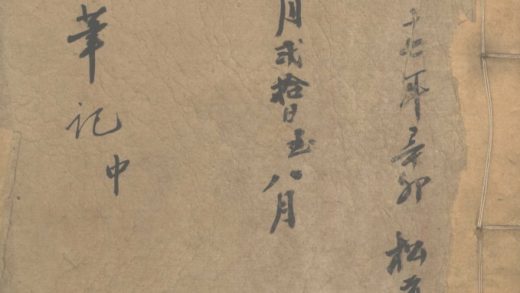 十七年辛卯 松
月弍拾日至八月
筆記中